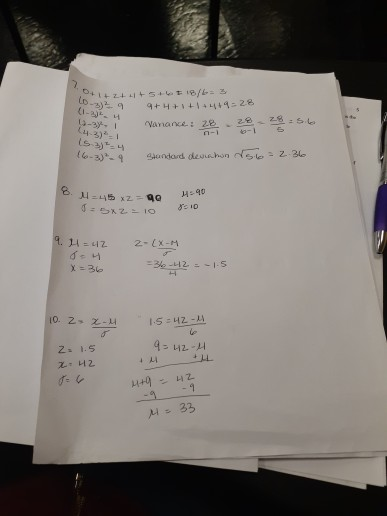 7. 0+1+2+4+5+6 = 18/6 = 3
(0-3)² = 9 9+4+1+1+4+9 = 28
(1-3)² = 4
(2-3)² = 1 Variance: 28/n-1 = 28/6-1 = 28/5 = 5.6
(4-3)² = 1
(5-3)² = 4
(6-3)² = 9 Standard deviation √5.6 = 2.36
8. μ = 45 x 2 = 90 μ = 90
σ = 5 x 2 = 10 σ = 10
9. μ = 42 z = (x-μ/σ
σ = 4
x = 36 = 36-42/4 = -1.5
10. z = x-μ/σ 1.5 = 42-μ/6
z = 1.5 9 = 42-μ
x = 42 +μ +μ
σ = 6 μ+9 = 42
-9 -9
μ = 33